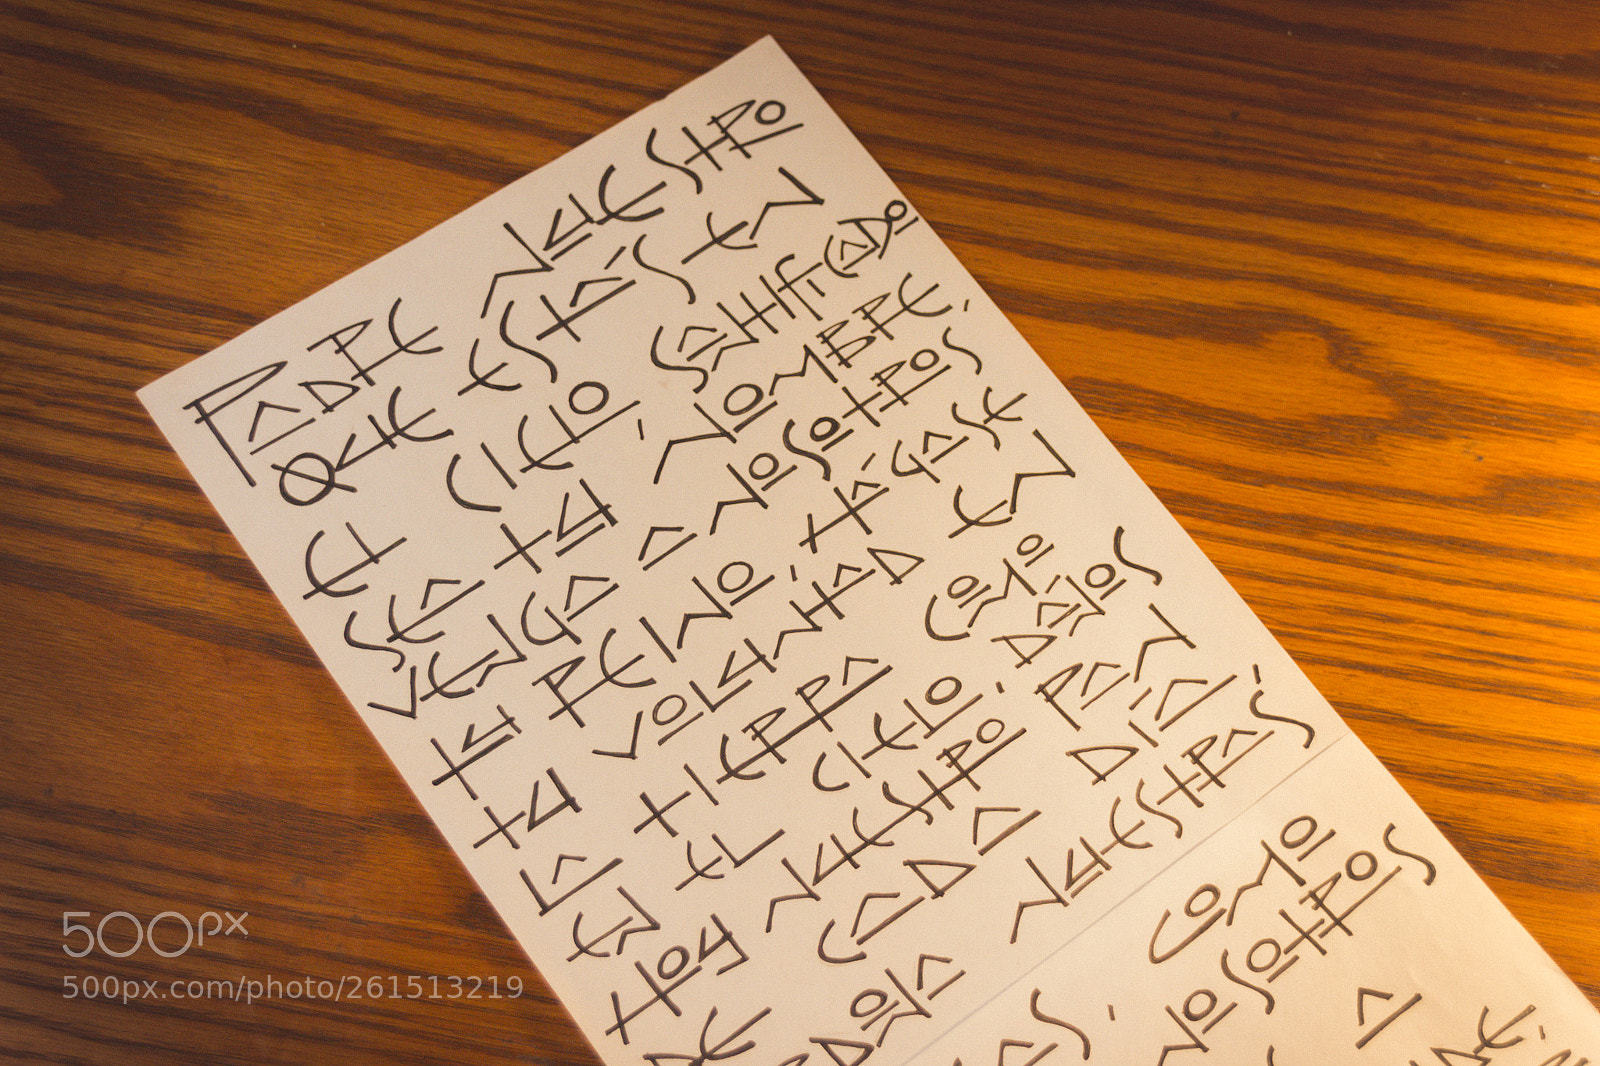 PADRE NUESTRO
QUE ESTÁS EN
EL CIELO, SANTIFICADO
SEA TU NOMBRE.
VENGA A NOSOTROS
TU REINO. HÁGASE
TU VOLUNTAD EN
LA TIERRA COMO
EN EL CIELO. DANOS
HOY NUESTRO PAN
DE CADA DÍA.
NUESTRAS
COMO
NOSOTROS
500px
500px.com/photo/261513219